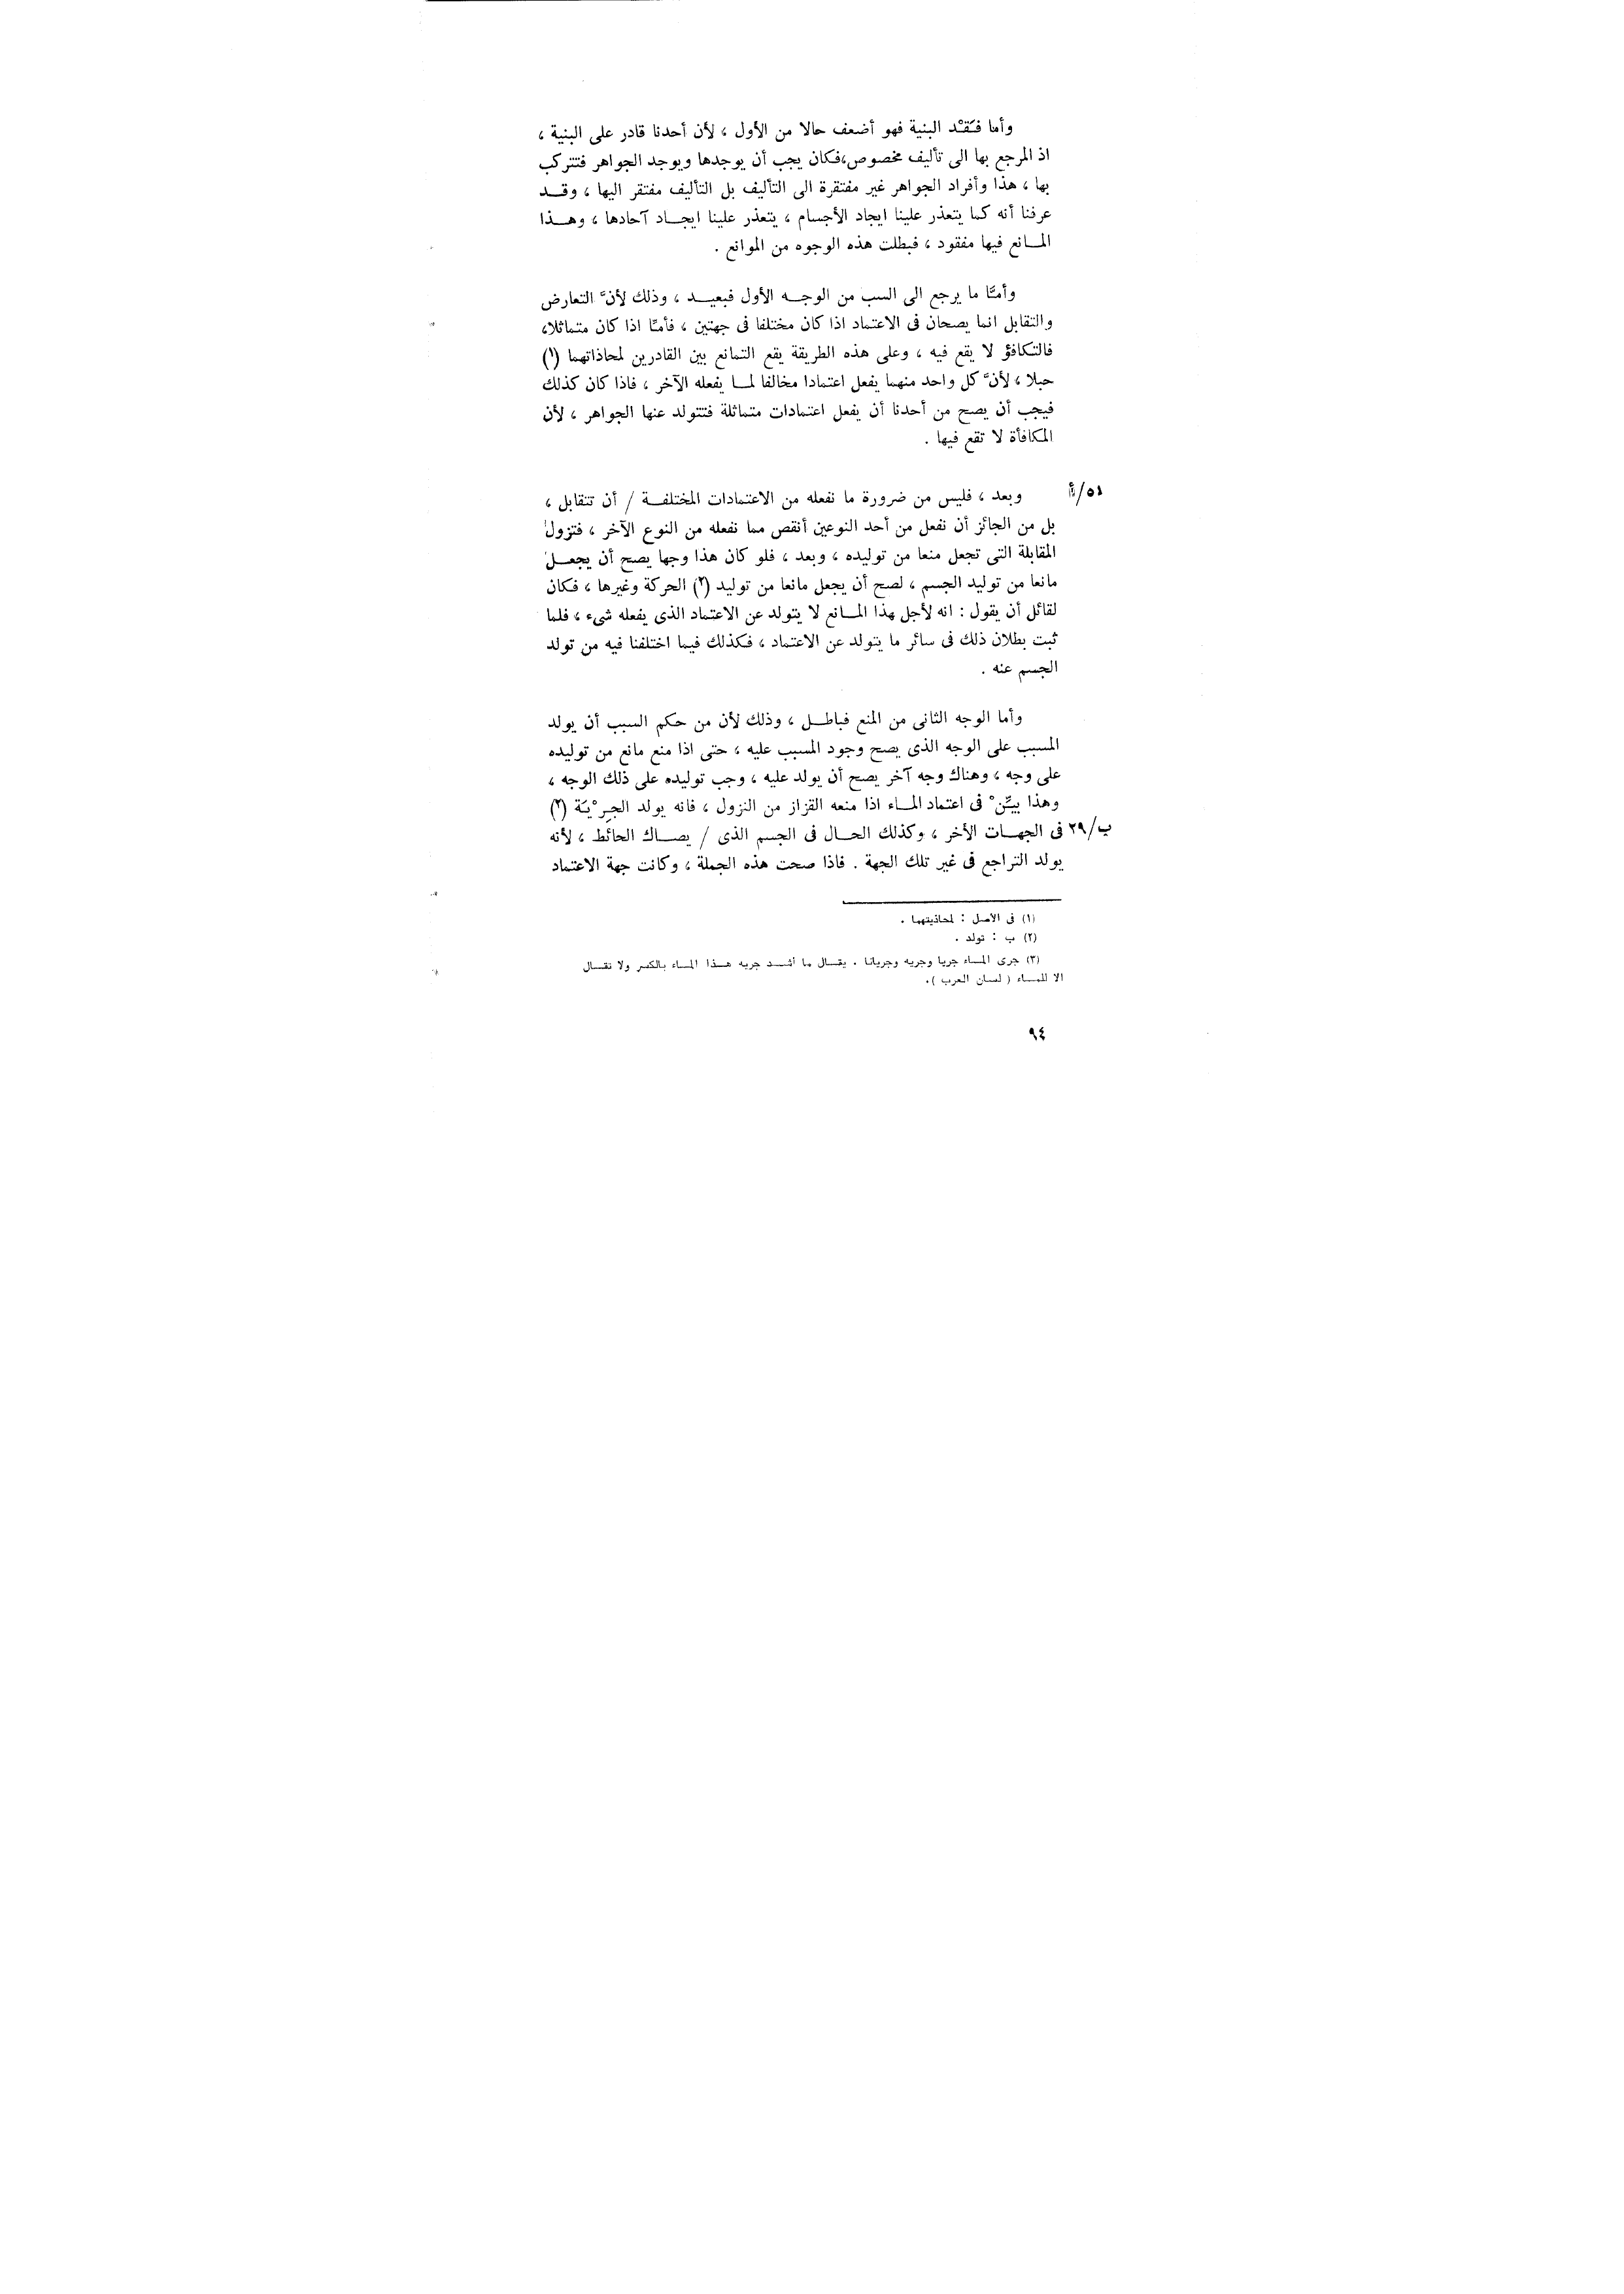 وأما فَقْد البنية فهو أضعف حالا من الأول ، لأن أحدنا قادر على البنية ،
اذ المرجع بها الى تأليف مخصوص،فكان يجب أن يوجدها ويوجد الجواهر فتتركب
بها ، هذا وأفراد الجواهر غير مفتقرة الى التأليف بل التأليف مفتقر اليها ، وقـد
عرفنا أنه كما يتعذر علينا ايجاد الأجسام ، يتعذر علينا ايجـاد آحادها ، وهـذا
المـانع فيها مفقود ، فبطلت هذه الوجوه من الموانع .
وأمَّا ما يرجع الى السب من الوجـه الأول فبعيـد ، وذلك لأنَّ التعارض
والتقابل انما يصحان فى الاعتماد اذا كان مختلفا فى جهتين ، فأمَّا اذا كان متماثلا،
فالتكافؤ لا يقع فيه ، وعلى هذه الطريقة يقع التمانع بين القادرين لمحاذاتهما (١)
حبلا ، لأنَّ كل واحد منهما يفعل اعتمادا مخالفا لمـا يفعله الآخر ، فاذا كان كذلك
فيجب أن يصح من أحدنا أن يفعل اعتمادات متماثلة فتتولد عنها الجواهر ، لأن
المكافأة لا تقع فيها .
٥١/أ وبعد ، فليس من ضرورة ما نفعله من الاعتمادات المختلفـة / أن تتقابل ،
بل من الجائز أن نفعل من أحد النوعين أنقص مما نفعله من النوع الآخر ، فتزول
المقابلة التى تجعل منعا من توليده ، وبعد ، فلو كان هذا وجها يصح أن يجعـل
مانعا من توليد الجسم ، لصح أن يجعل مانعا من توليد (٢) الحركة وغيرها ، فكان
لقائل أن يقول : انه لأجل هذا المـانع لا يتولد عن الاعتماد الذى يفعله شىء ، فلما
ثبت بطلان ذلك فى سائر ما يتولد عن الاعتماد ، فكذلك فيما اختلفنا فيه من تولد
الجسم عنه .
وأما الوجه الثانى من المنع فباطـل ، وذلك لأن من حكم السبب أن يولد
المسبب على الوجه الذى يصح وجود المسبب عليه ، حتى اذا منع مانع من توليده
على وجه ، وهناك وجه آخر يصح أن يولد عليه ، وجب توليده على ذلك الوجه ،
وهذا بيِّنْ فى اعتماد المـاء اذا منعه القزاز من النزول ، فانه يولد الجِرْيَة (٣)
٢٩/ب فى الجهـات الأخر ، وكذلك الحـال فى الجسم الذى / يصـاك الحائط ، لأنه
يولد التراجع فى غير تلك الجهة . فاذا صحت هذه الجملة ، وكانت جهة الاعتماد
(١) فى الأصل : لمحاذيتهما .
(٢) ب : تولد .
(٣) جرى المـاء جريا وجرية وجريانا . يقـال ما أشـد جرية هـذا المـاء بالكسر ولا تقـال
الا للمـاء ( لسان العرب ).
٩٤